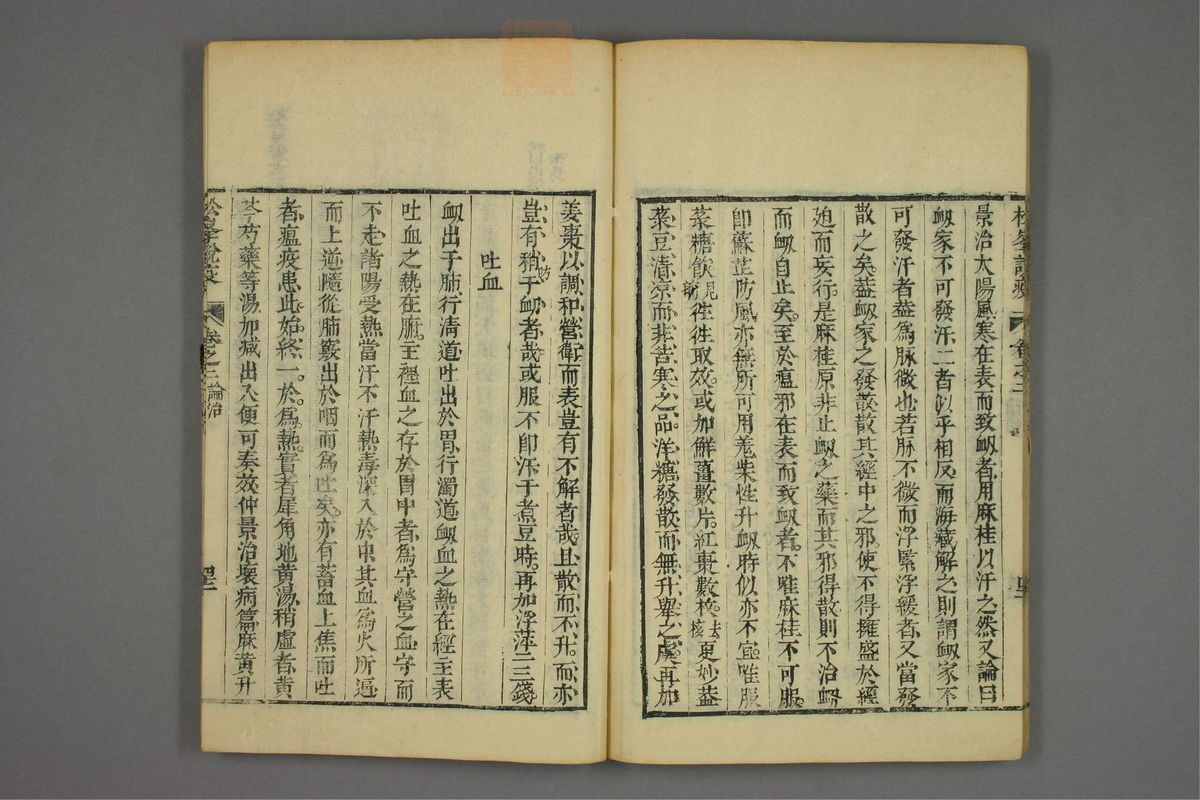 景治太陽風寒在表而致衂者用麻桂以汗之然又論曰
衂家不可發汗二者似乎相反而海藏解之則謂衂家不
可發汗者葢爲脉微也若脉不微而浮緊浮緩者又當發
散之矣葢衂家之發散散其經中之邪使不得擁盛於經
廹而妄行是麻桂原非止衂之藥而其邪得散則不治衂
而衂自止矣至於瘟邪在表而致衂者不唯麻桂不可服
即蘇芷防風亦無所可用羗柴性升衂時似亦不宜唯服
菉糖飲見新徃徃取效或加鮮薑數片紅棗數枚去核更妙葢
菉豆清凉而非苦寒之品洋糖發散而無升舉之虞再加
姜棗以調和營衛而表豈有不解者哉且散而不升而亦
豈有稍妨于衂者哉或服不即汗于煮豆時再加浮萍三錢
吐血
衂出于肺行清道吐出於胃行濁道衂血之熱在經主表
吐血之熱在腑主裡血之存於胃中者爲守營之血守而
不走諸陽受熱當汗不汗熱毒深入於中其血爲火所逼
而上逆隨從肺竅出於咽而爲吐矣亦有蓄血上焦而吐
者瘟疫患此始終一於爲熱實者犀角地黃湯稍虛者黃
芩芍藥等湯加減出入便可奏效仲景治壞病篇麻黃升
松峯說疫
卷之二
論治